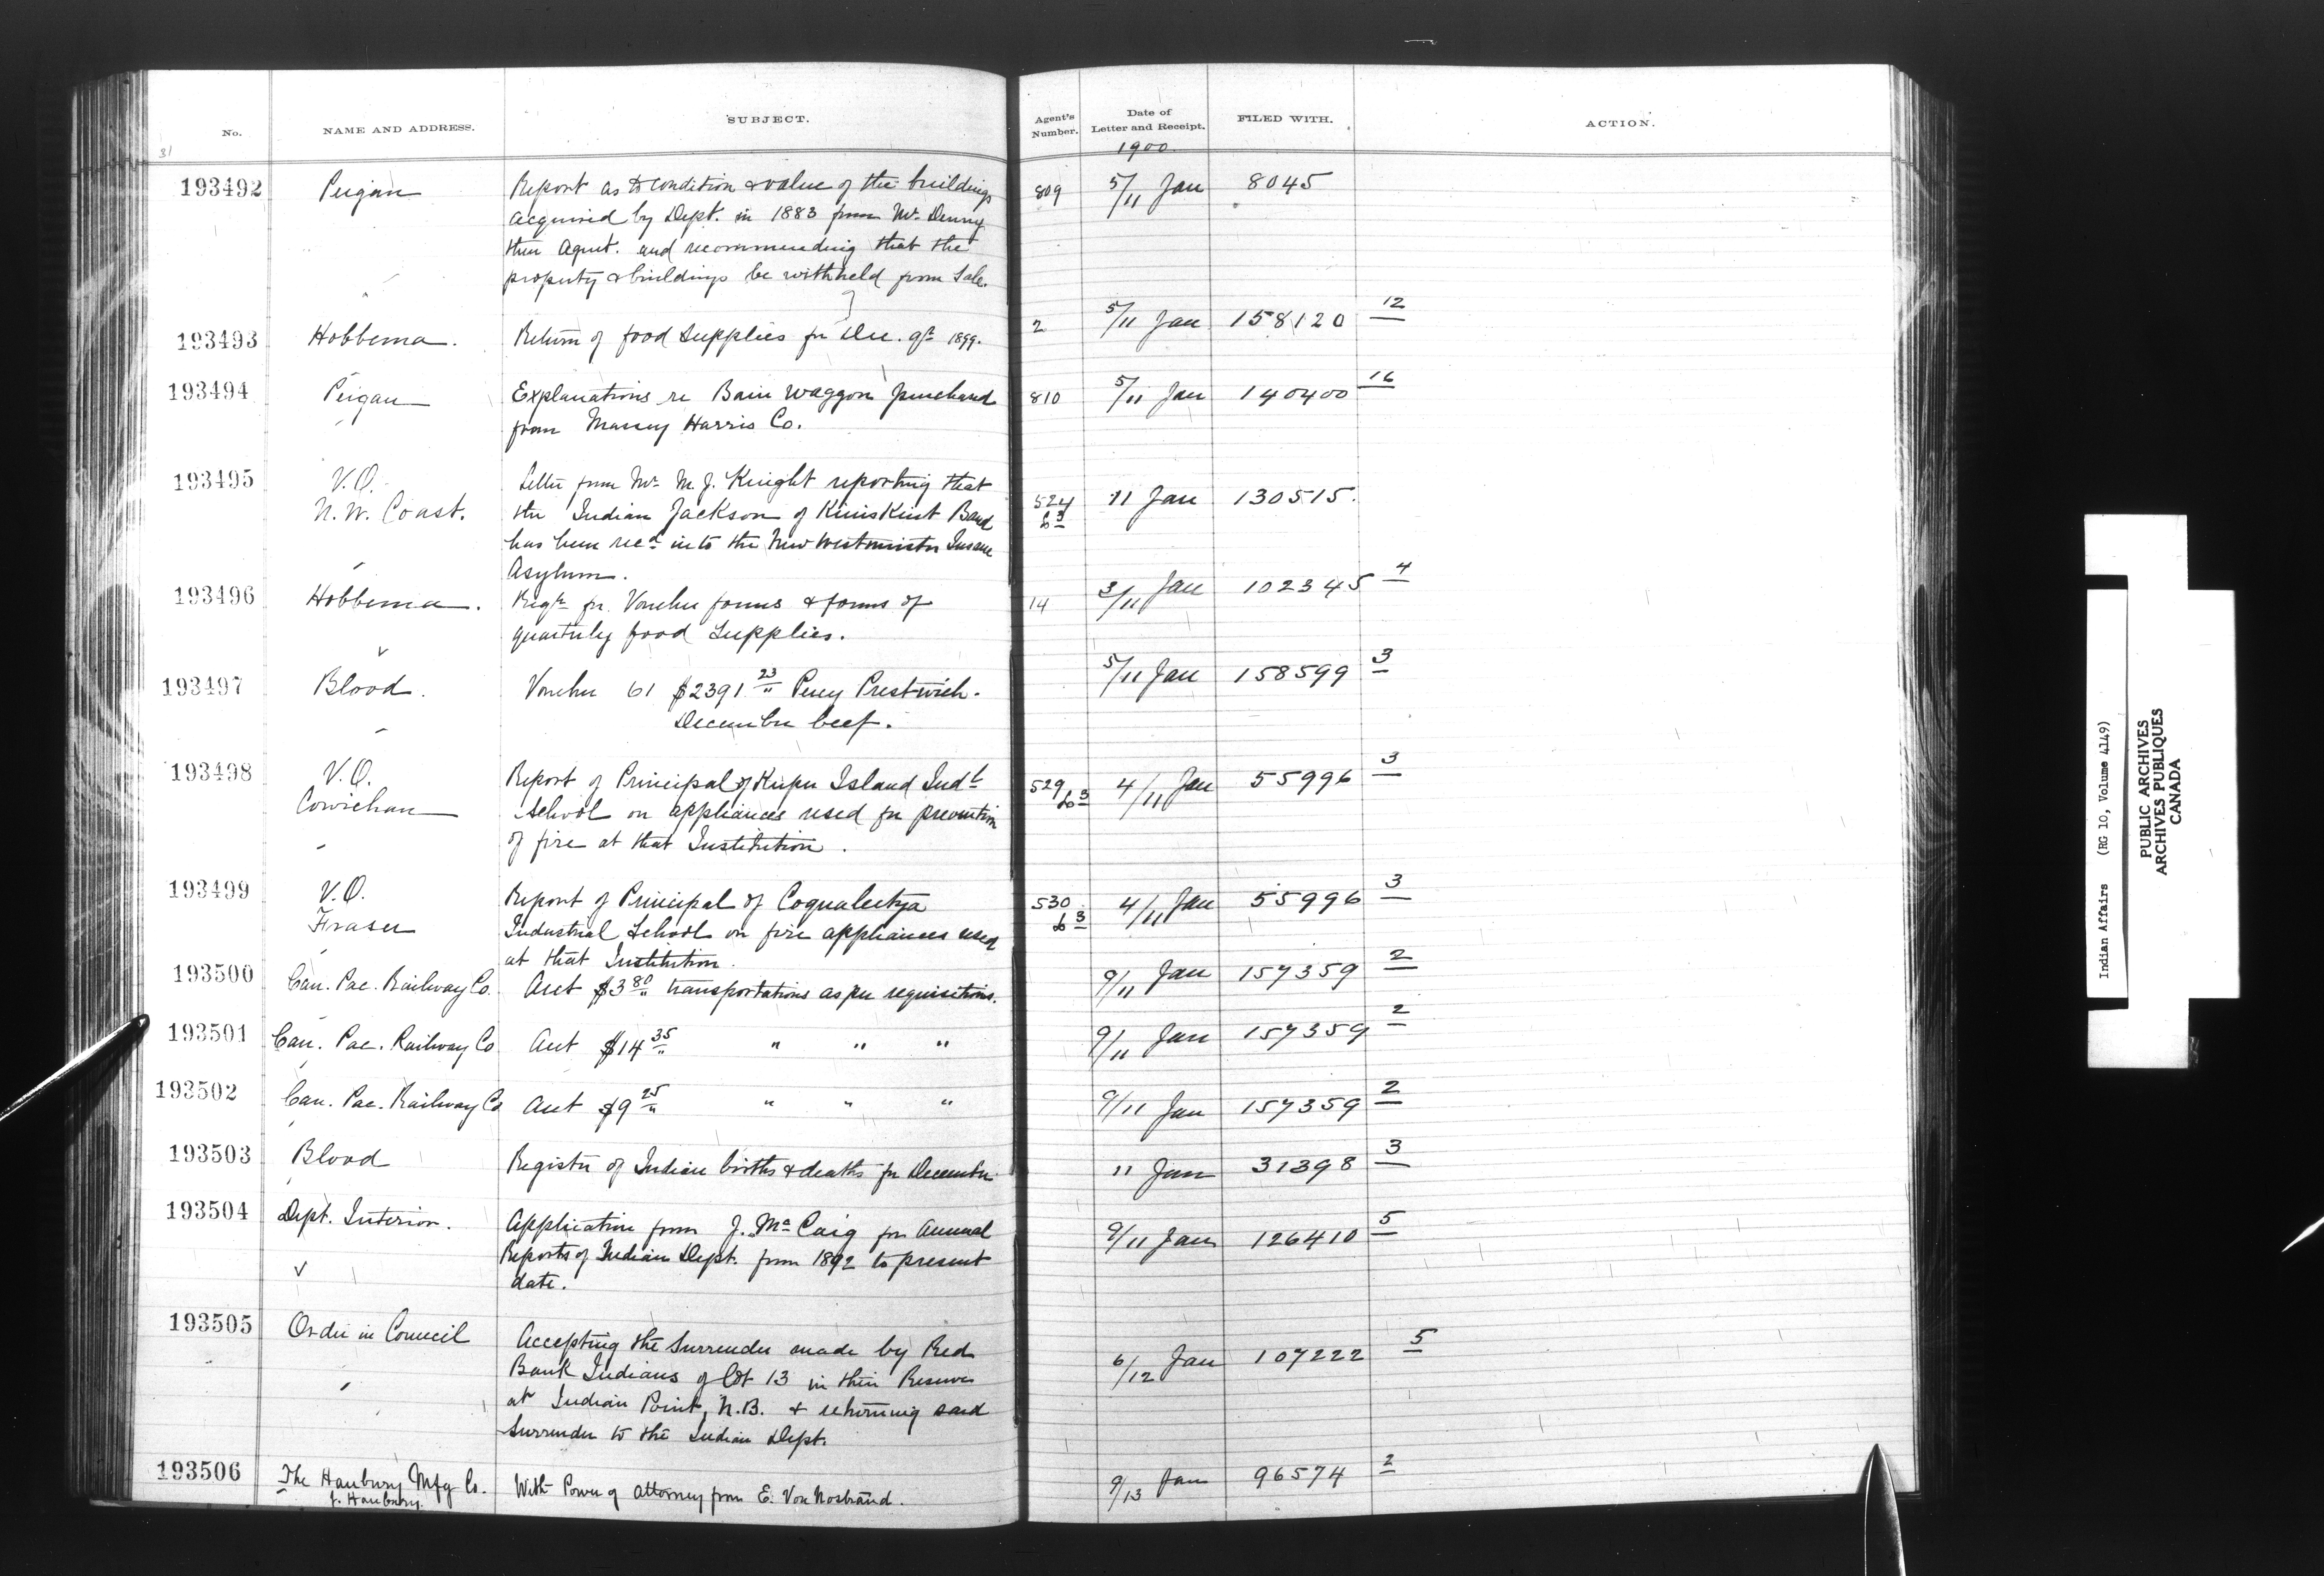 No. NAME AND ADDRESS. SUBJECT. Agent's Number. Date of Letter and Receipt. FILED WITH. ACTION.
31
1900
193492 Peigan Report as to condition & value of the buildings 809 5/11 Jan 8045
acquired by Dept. in 1883 from Mr. Denny
then Agent. and recommending that the
property & buildings be withheld from Sale.
193493 Hobbema. Return of food Supplies for Dec. qr. 1899. 2 5/11 Jan 158120 12
193494 Peigan Explanations re Bain Waggon purchased 810 5/11 Jan 140400 16
from Massey Harris Co.
193495 V.O. Letter from Mr. M. J. Knight reporting that
N.W. Coast. the Indian Jackson of Band 524 11 Jan 130515.
has been recd into the New Westminster Insane
Asylum.
193496 Hobbema. Reqn for Voucher forms & forms of 14 3/11 Jan 102345 4
quarterly food Supplies.
193497 Blood. Voucher 61 $2391 23 Percy Prestwich. 5/11 Jan 158599 3
December beef.
193498 V.O. Report of Principal of Kuper Island Indl 529 b3 4/11 Jan 55996 3
Cowichan School on appliances used for prevention
of fire at that Institution.
193499 V.O. Report of Principal of Coqualeetza 530 b3 4/11 Jan 55996 3
Fraser Industrial School on fire appliances used
at that Institution.
193500 Can. Pac. Railway Co. Acct $3 80 transportations as per requisitions. 9/11 Jan 157359 2
193501 Can. Pac. Railway Co Acct $14 35 " " " 9/11 Jan 157359 2
193502 Can. Pac. Railway Co Acct $9 25 " " " 9/11 Jan 157359 2
193503 Blood Register of Indian births & deaths for December 11 Jan 31398 3
193504 Dept. Interior. Application from J. McCaig for Annual 9/11 Jan 126410 5
Reports of Indian Dept. from 1892 to present
date.
193505 Order in Council Accepting the Surrender made by Red 6/12 Jan 107222 5
Bank Indians of lot 13 in their Reserve
at Indian Point, N.B. & returning said
Surrender to the Indian Dept.
193506 The Hanbury Mfg Co. With Power of attorney from E. Von Nostrand. 9/13 Jan 96574 2
J. Hanbury.
Indian Affairs (RG 10, Volume 4149)
PUBLIC ARCHIVES
ARCHIVES PUBLIQUES
CANADA